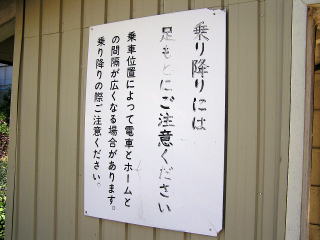 乗り降りには
足もとにご注意ください
乗車位置によって電車とホームと
の間隔が広くなる場合があります。
乗り降りの際ご注意ください。